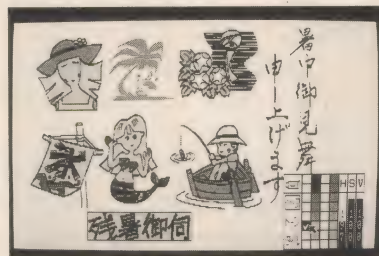 暑中御見舞
申し上げます
氷
残暑御伺
HSV